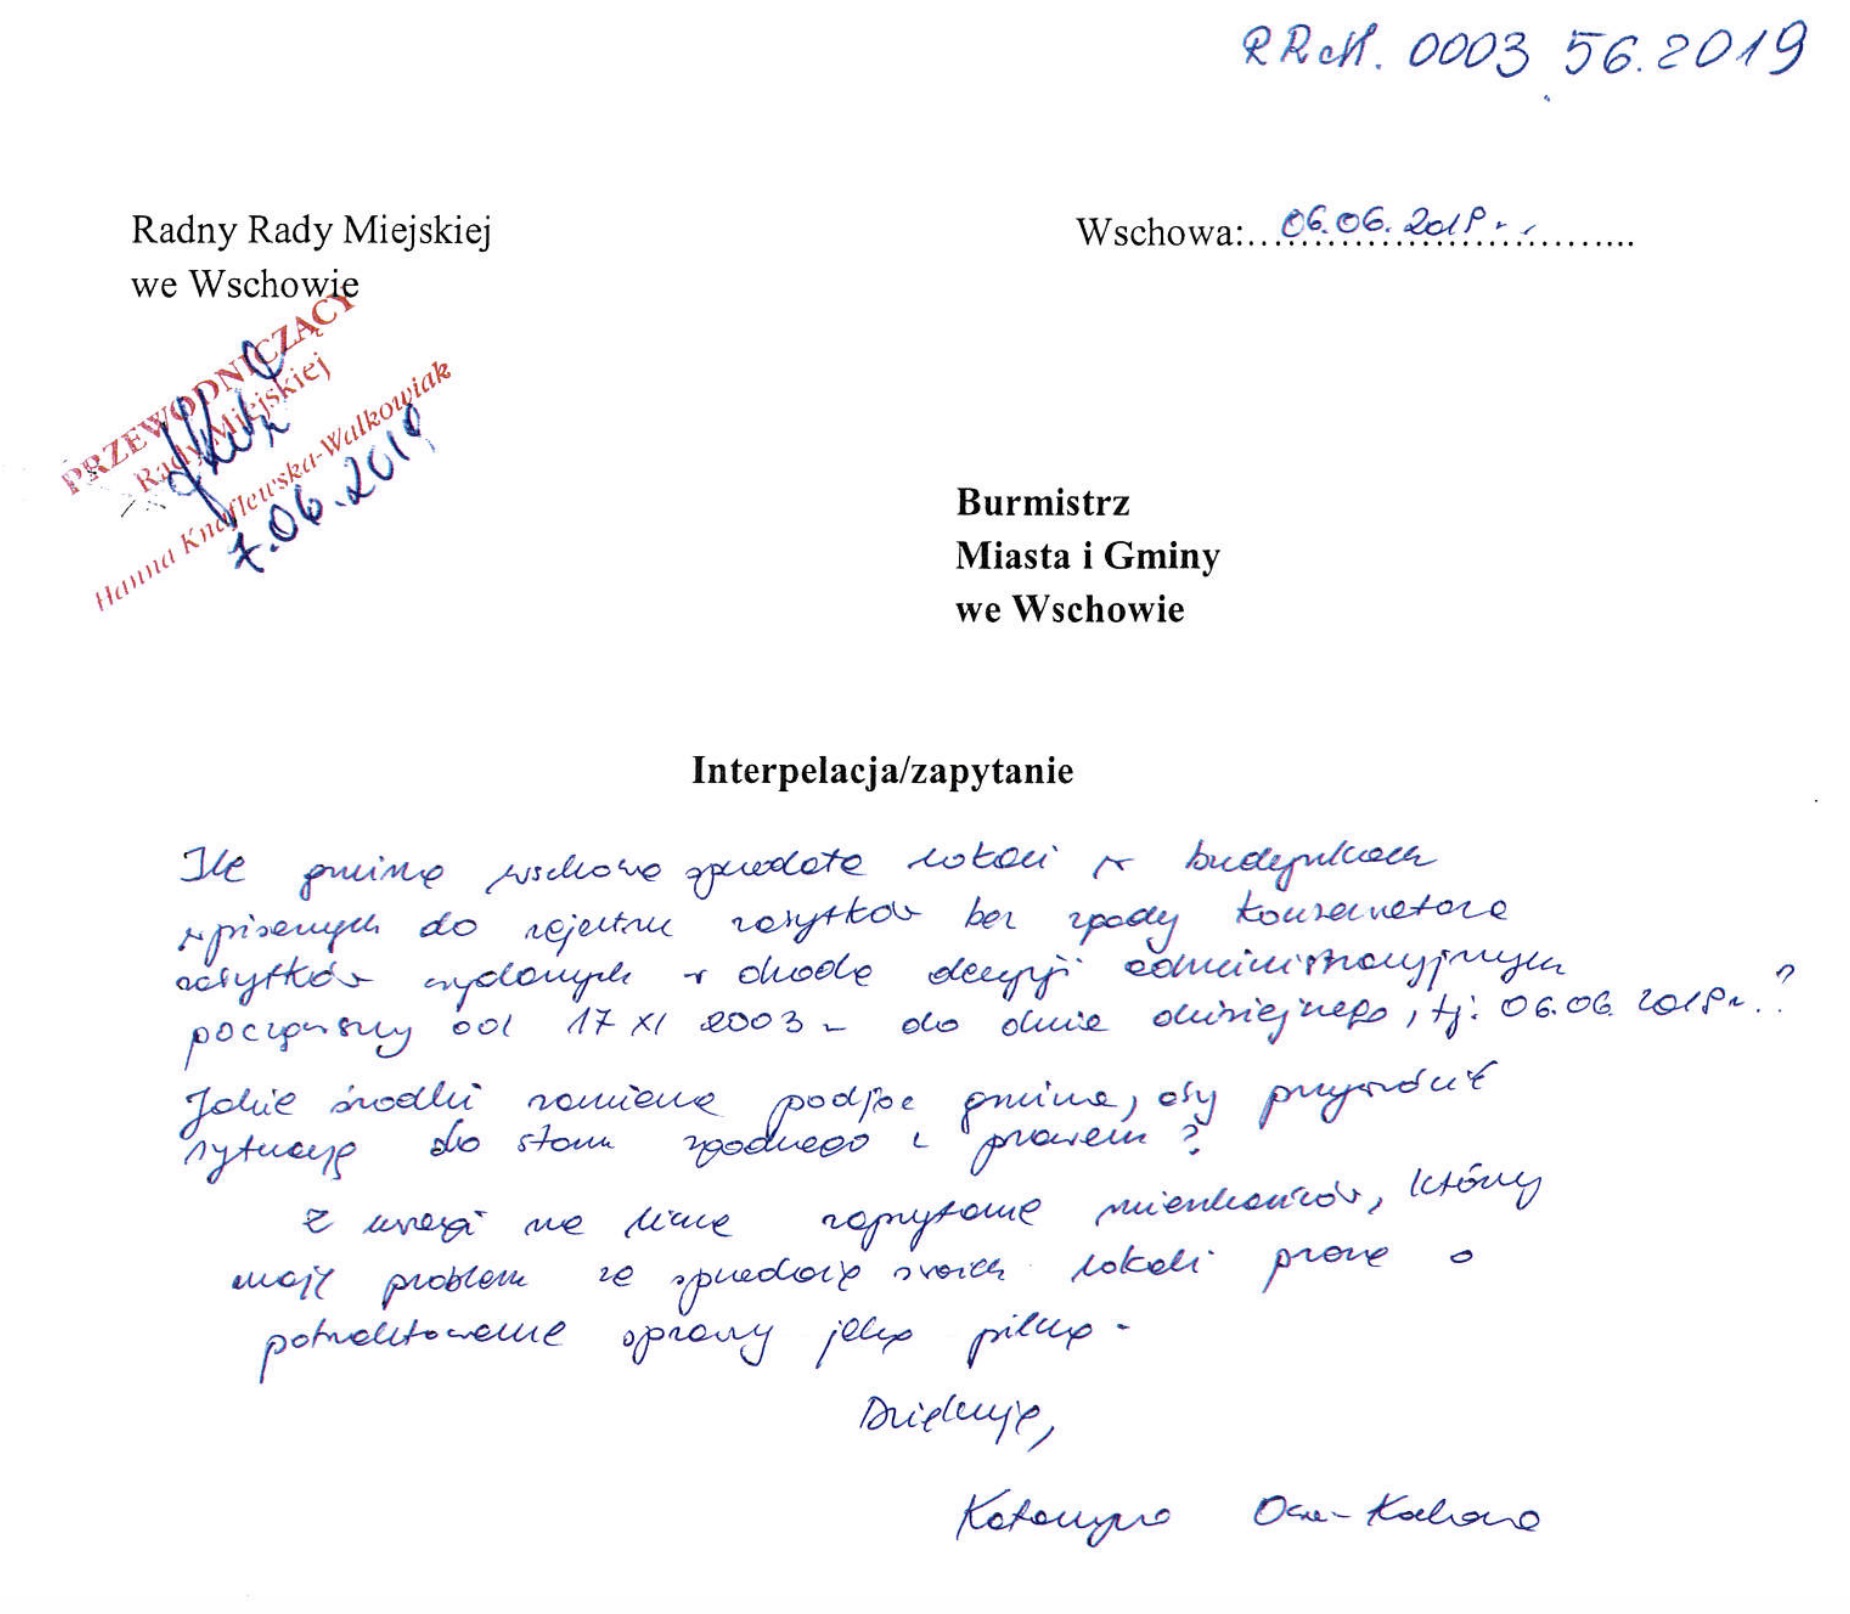 RRM. 0003 56.2019
Radny Rady Miejskiej
we Wschowie
Wschowa: 06.06.2019 r.
PRZEWODNICZĄCY
Rady Miejskiej
Hanna Knaflewska-Walkowiak
7.06.2019
Burmistrz
Miasta i Gminy
we Wschowie
Interpelacja/zapytanie
Ile gmina Wschowa sprzedała lokali w budynkach
wpisanych do rejestru zabytków bez zgody konserwatora
zabytków wydanych w drodze decyzji administracyjnych
począwszy od 17 XI 2003 r. do dnia dzisiejszego, tj. 06.06.2019 r.?
Jakie środki zamierza podjąć gmina, aby przywrócić
sytuację do stanu zgodnego z prawem?
Z uwagi na liczne zapytania mieszkańców, którzy
mają problem ze sprzedażą swoich lokali proszę o
potraktowanie sprawy jako pilną.
Dziękuję,
Katarzyna